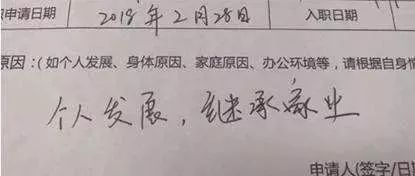 申请日期 2018年2月28日 入职日期
原因：(如个人发展、身体原因、家庭原因、办公环境等，请根据自身情
个人发展，继承家业
申请人(签字/日